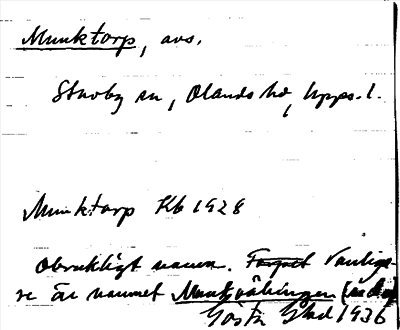 Munktorp, avs.
Stavby sn, Olands hd, Upps. l.
Munktorp Kb 1928
Obrukligt namn. Vanliga-
re är namnet Munkvälningen
Gösta Blad 1936